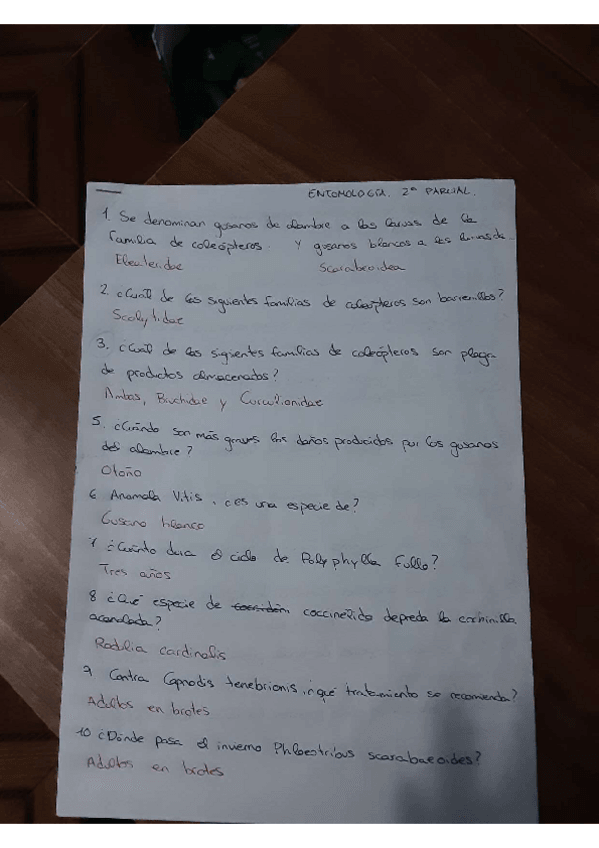 ENTOMOLOGÍA. 2º PARCIAL.
1. Se denominan gusanos de alambre a las larvas de la
familia de coleópteros. Y gusanos blancos a las larvas de
Elateridae Scarabeoidea
2. ¿Cuál de las siguientes familias de coleópteros son barrenillos?
Scolytidae
3. ¿Cuál de las siguientes familias de coleópteros son plaga
de productos almacenados?
Ambas, Bruchidae y Curculionidae
5. ¿Cuándo son más graves los daños producidos por los gusanos
del alambre?
Otoño
6 Anomala Vitis, ¿es una especie de?
Gusano blanco
7 ¿Cuánto dura el ciclo de Polyphylla Fullo?
Tres años
8 ¿Qué especie de coccinelido depreda la cochinilla
acanalada?
Rodolia cardinalis
9 Contra Capnodis tenebrionis, ¿qué tratamiento se recomienda?
Adultos en brotes
10 ¿Dónde pasa el invierno Phloeotribus scarabaeoides?
Adultos en brotes